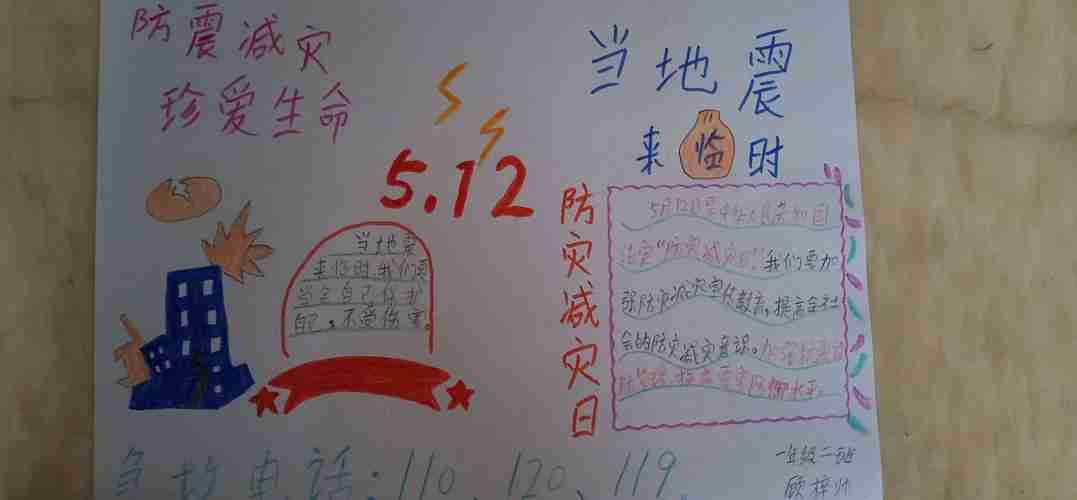 防震减灾
珍爱生命
5.12
当地震
来临时我们要
学会自己保护
自己，不受伤害。
当地震
来临时
防灾减灾日
5月12日是中华人民共和国
法定“防灾减灾日”。我们要加
强防灾减灾宣传教育，提高全社
会的防灾减灾意识。加强抗震设
防管理，提高震害防御水平。
急救电话：110、120、119.
一年级二班
顾梓